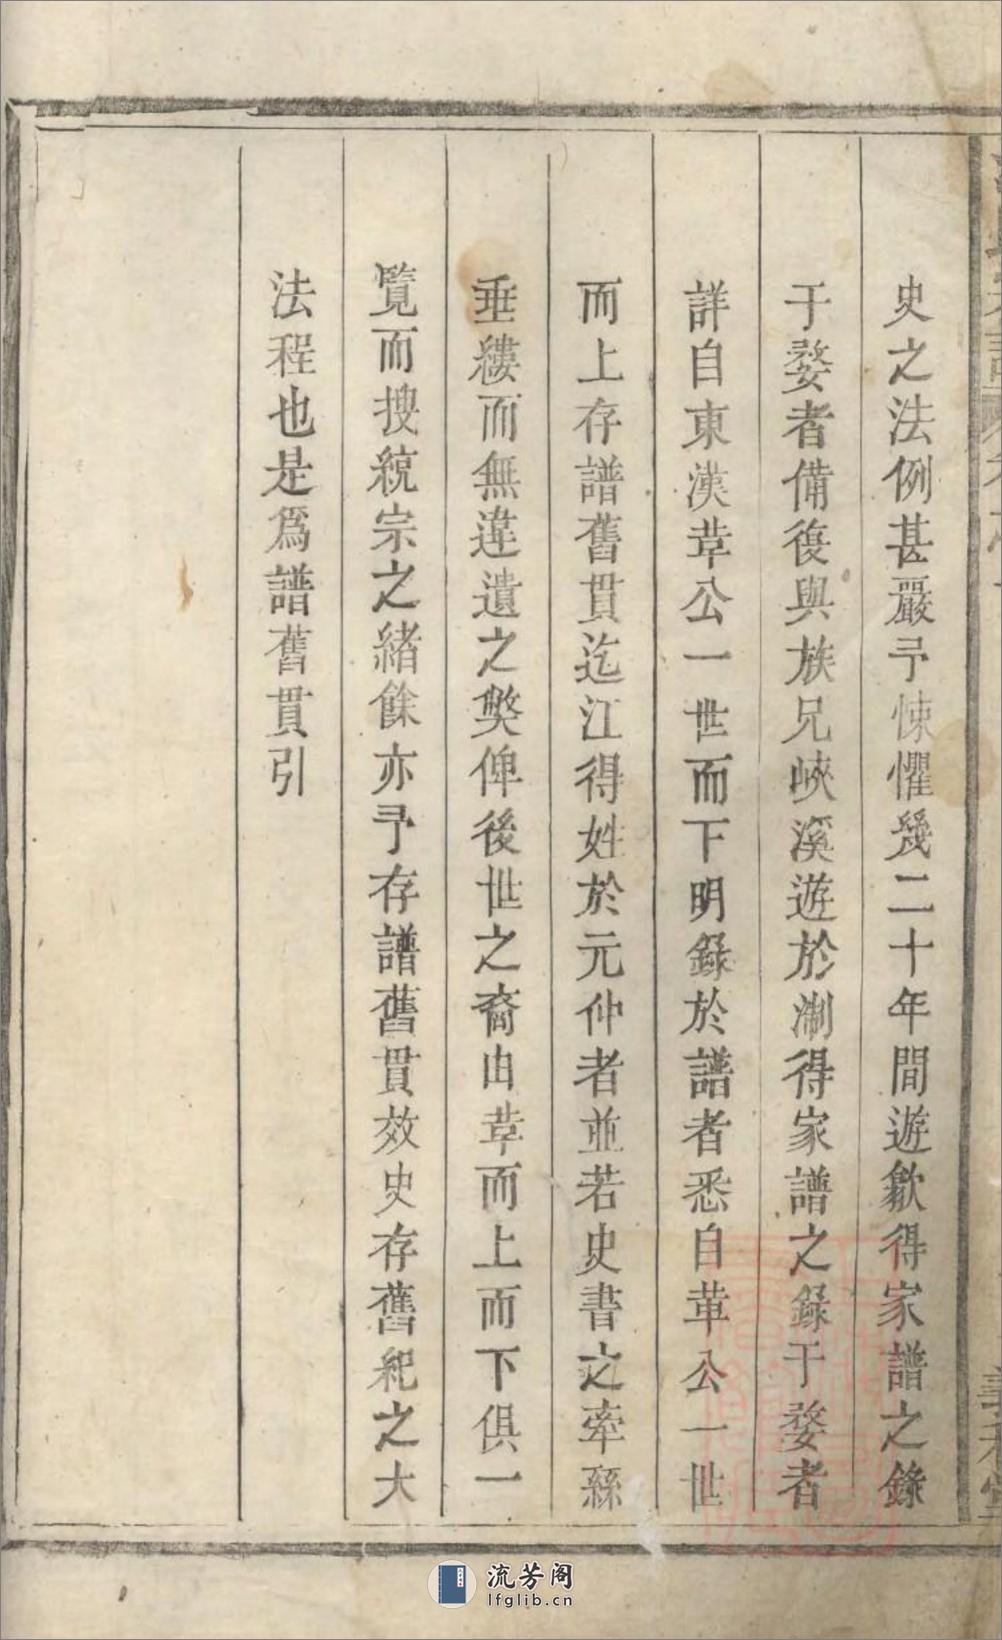 史之法例甚嚴予悚懼幾二十年間遊歙得家譜之錄
于婺者備復與族兄峽溪遊於淛得家譜之錄于婺者
詳自東漢韋公一世而下明錄於譜者悉自韋公一世
而上存譜舊貫迄江得姓於元仲者並若史書之牽絲
垂縷而無違遺之獘俾後世之裔由韋而上而下俱一
覽而搜統宗之緒餘亦予存譜舊貫效史存舊紀之大
法程也是爲譜舊貫引
義和堂
流芳阁
lfglib.cn